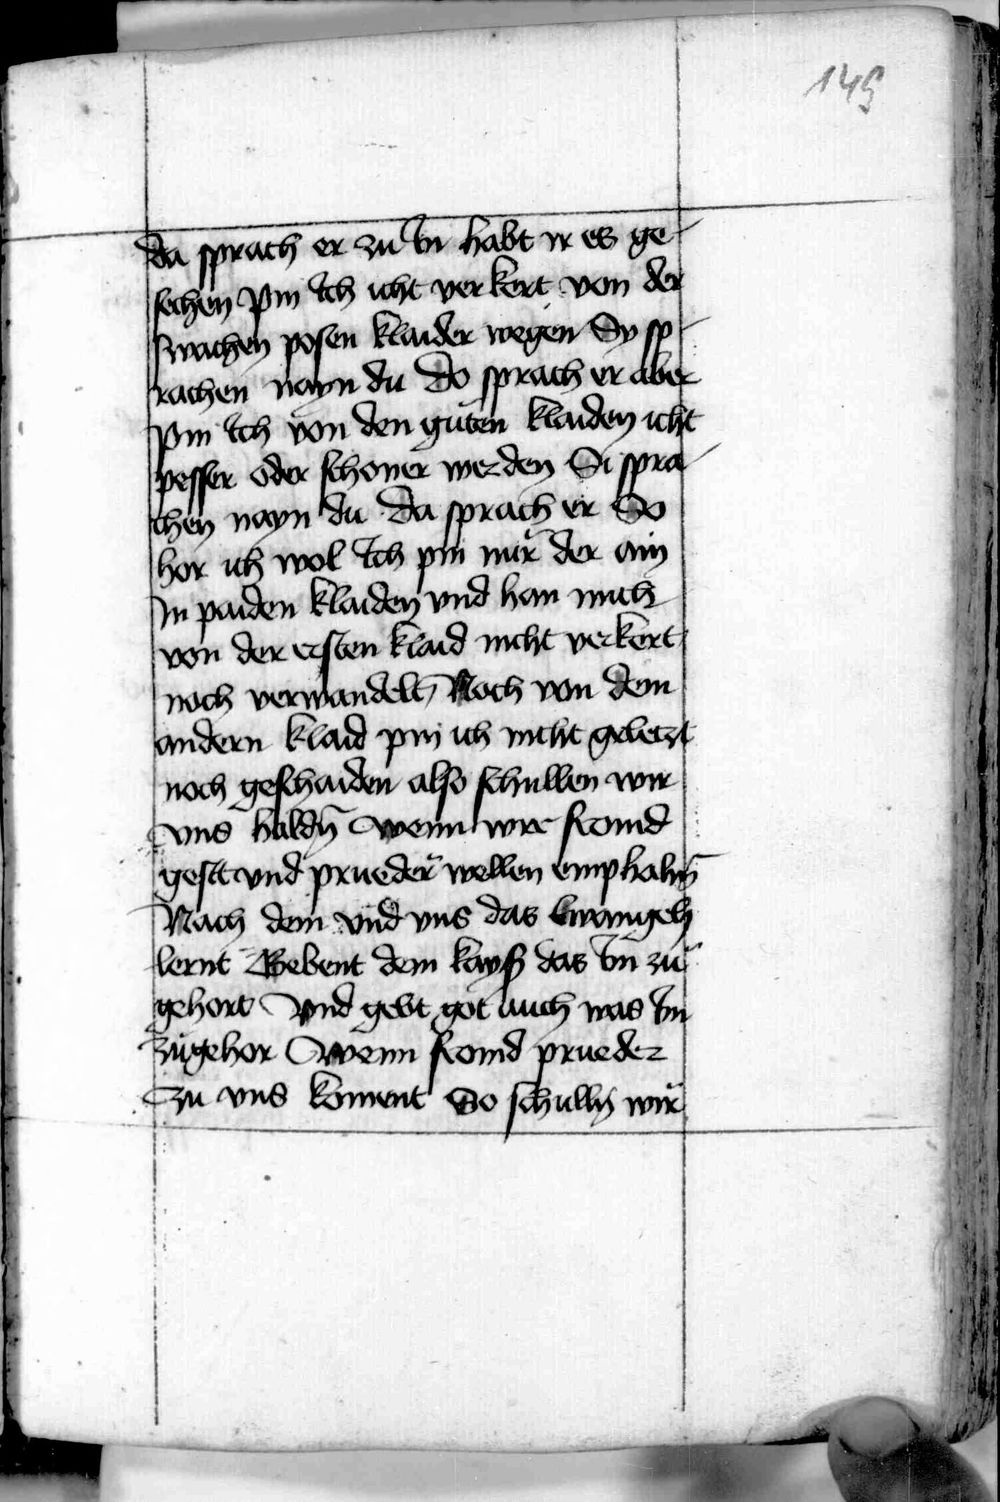 149
da sprach er zu In habt ir es ge-
sechen Pin Ich icht verkert von der
swachen posen klaider wegen Sy sp-
rachen nayn du Do sprach er aber
Pin Ich von den guten klaiden icht
pesser oder schoner werden Si spra-
chen nayn du Da sprach er So
hor ich wol Ich pin nur der ain
In paiden klaiden vnd han mich
von der ersten klaid nicht verkert
noch verwandelt Noch von dem
andern klaid pin ich nicht geletzt
noch geschaiden also schullen wir
vns haldn̄ Wenn wir fromd
gest vnd prueder wellen emphahn̄
Nach dem vnd vns das Ewangelj
lernt Gebent dem kaysʼ das Im zu
gehort Vnd gebt got auch was Im
zugehor Wenn fromd prueder
zu vns koment So schulln̄ wir